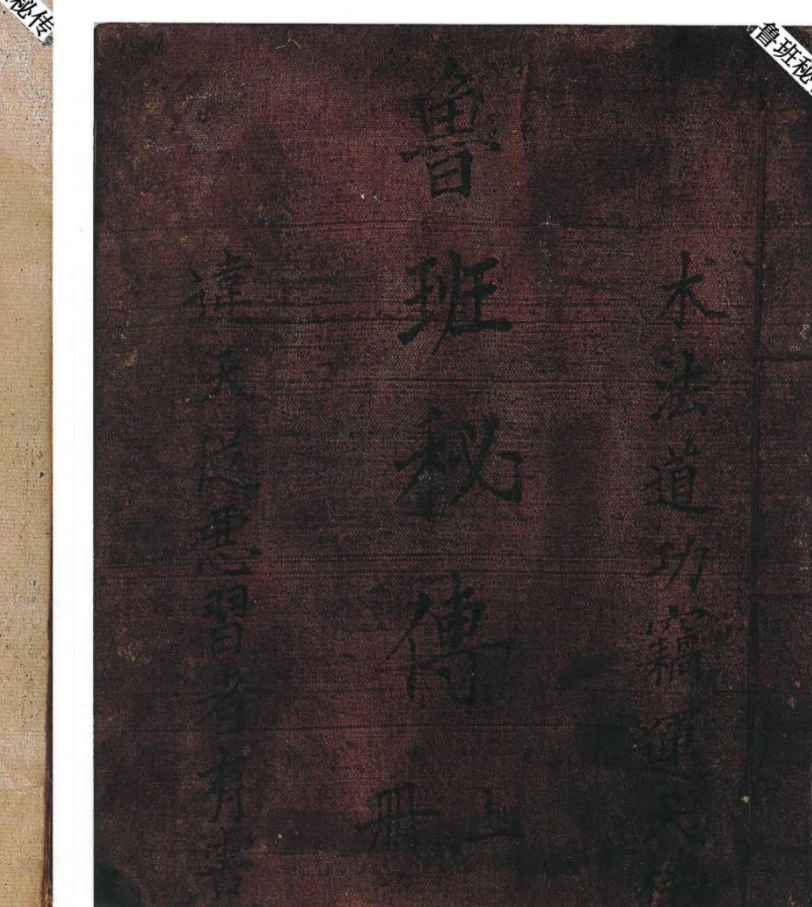 秘传
鲁班秘
木法道功竊運天
魯班秘傳
上册
違天從惡習者有害